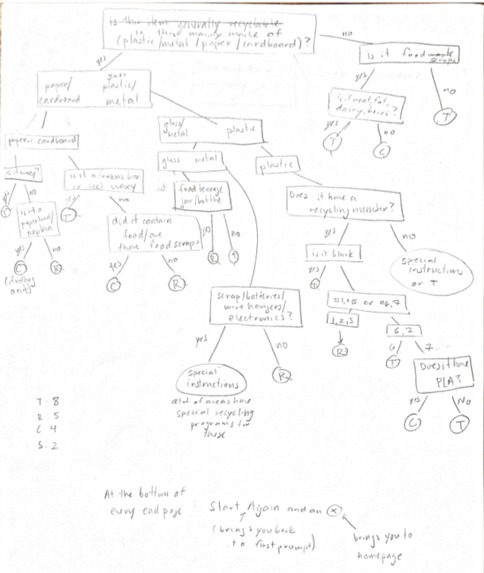 is this item generally recyclable
is this mainly made of
(plastic/metal/paper/cardboard)?
no
Is it food waste
scraps
yes
yes
no
glass
paper/
cardboard
plastic/
metal
Is it meat, fat,
dairy, bones?
T
yes
no
T
C
glass/
metal
plastic
paper
cardboard
glass
metal
plastic
is it waxy?
food/beverage
jar/bottle
Does it have a
recycling number?
yes
no
T
is it a
paper towel/
napkin
yes
no
C
R
T
no
did it contain
food/are
there food scraps
yes
no
C
R
yes
no
R
T
yes
no
is it black
special
instructions
or T
yes
no
T
or 6,7
1,2,5
6,7
R
6
7
T
Does it have
PLA?
yes
No
C
T
scrap/batteries/
wire hangers/
electronics?
yes
no
special
instructions
R
a lot of areas have
special recycling
programs for
these
T: 8
R: 5
C: 4
S: 2
At the bottom of
every end page
: Start Again and an X
(brings you back
to first prompt)
brings you to
homepage